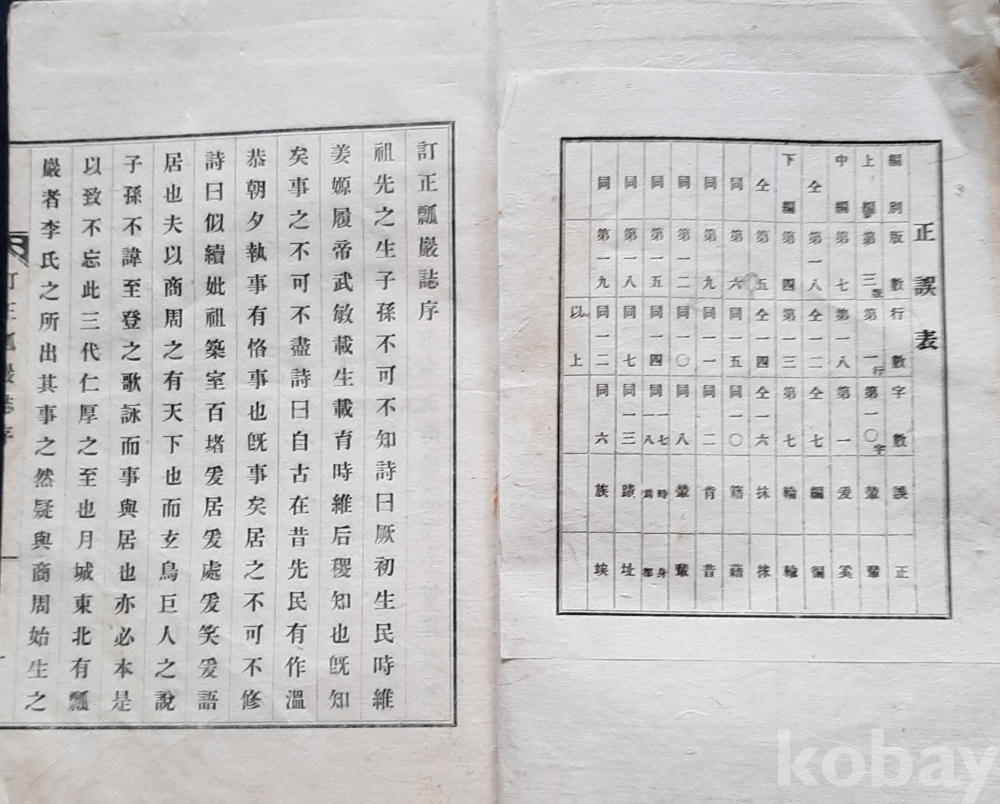 正誤表
編別 版數 行數 字數 誤 正
上編 第三版 第一行 第一〇字
中編 第七 第一八 第一 爰 奚
仝 第一八 仝一二 仝七 編
下編 第四 第一三 第七 輪
仝 第五 仝一四 仝一六 抹
同 第六 同一五 同一〇 籍 藉
同 第九 同一一 同二 肯 昔
同 第一二 同一〇 同八 輦 輩
同 第一五 同一四 同一七一八 時 身
同 第一八 同七 同一三 蹟 址
同 第一九 同一二 同六 族 竢
以上
訂正瓢巖誌序
祖先之生子孫不可不知詩曰厥初生民時維
姜嫄履帝武敏載生載育時維后稷知也旣知
矣事之不可不盡詩曰自古在昔先民有作溫
恭朝夕執事有恪事也旣事矣居之不可不修
詩曰似續妣祖築室百堵爰居爰處爰笑爰語
居也夫以商周之有天下也而玄鳥巨人之說
子孫不諱至登之歌詠而事與居也亦必本是
以致不忘此三代仁厚之至也月城東北有瓢
巖者李氏之所出其事之然疑與商周始生之
訂正瓢巖誌序
kobay